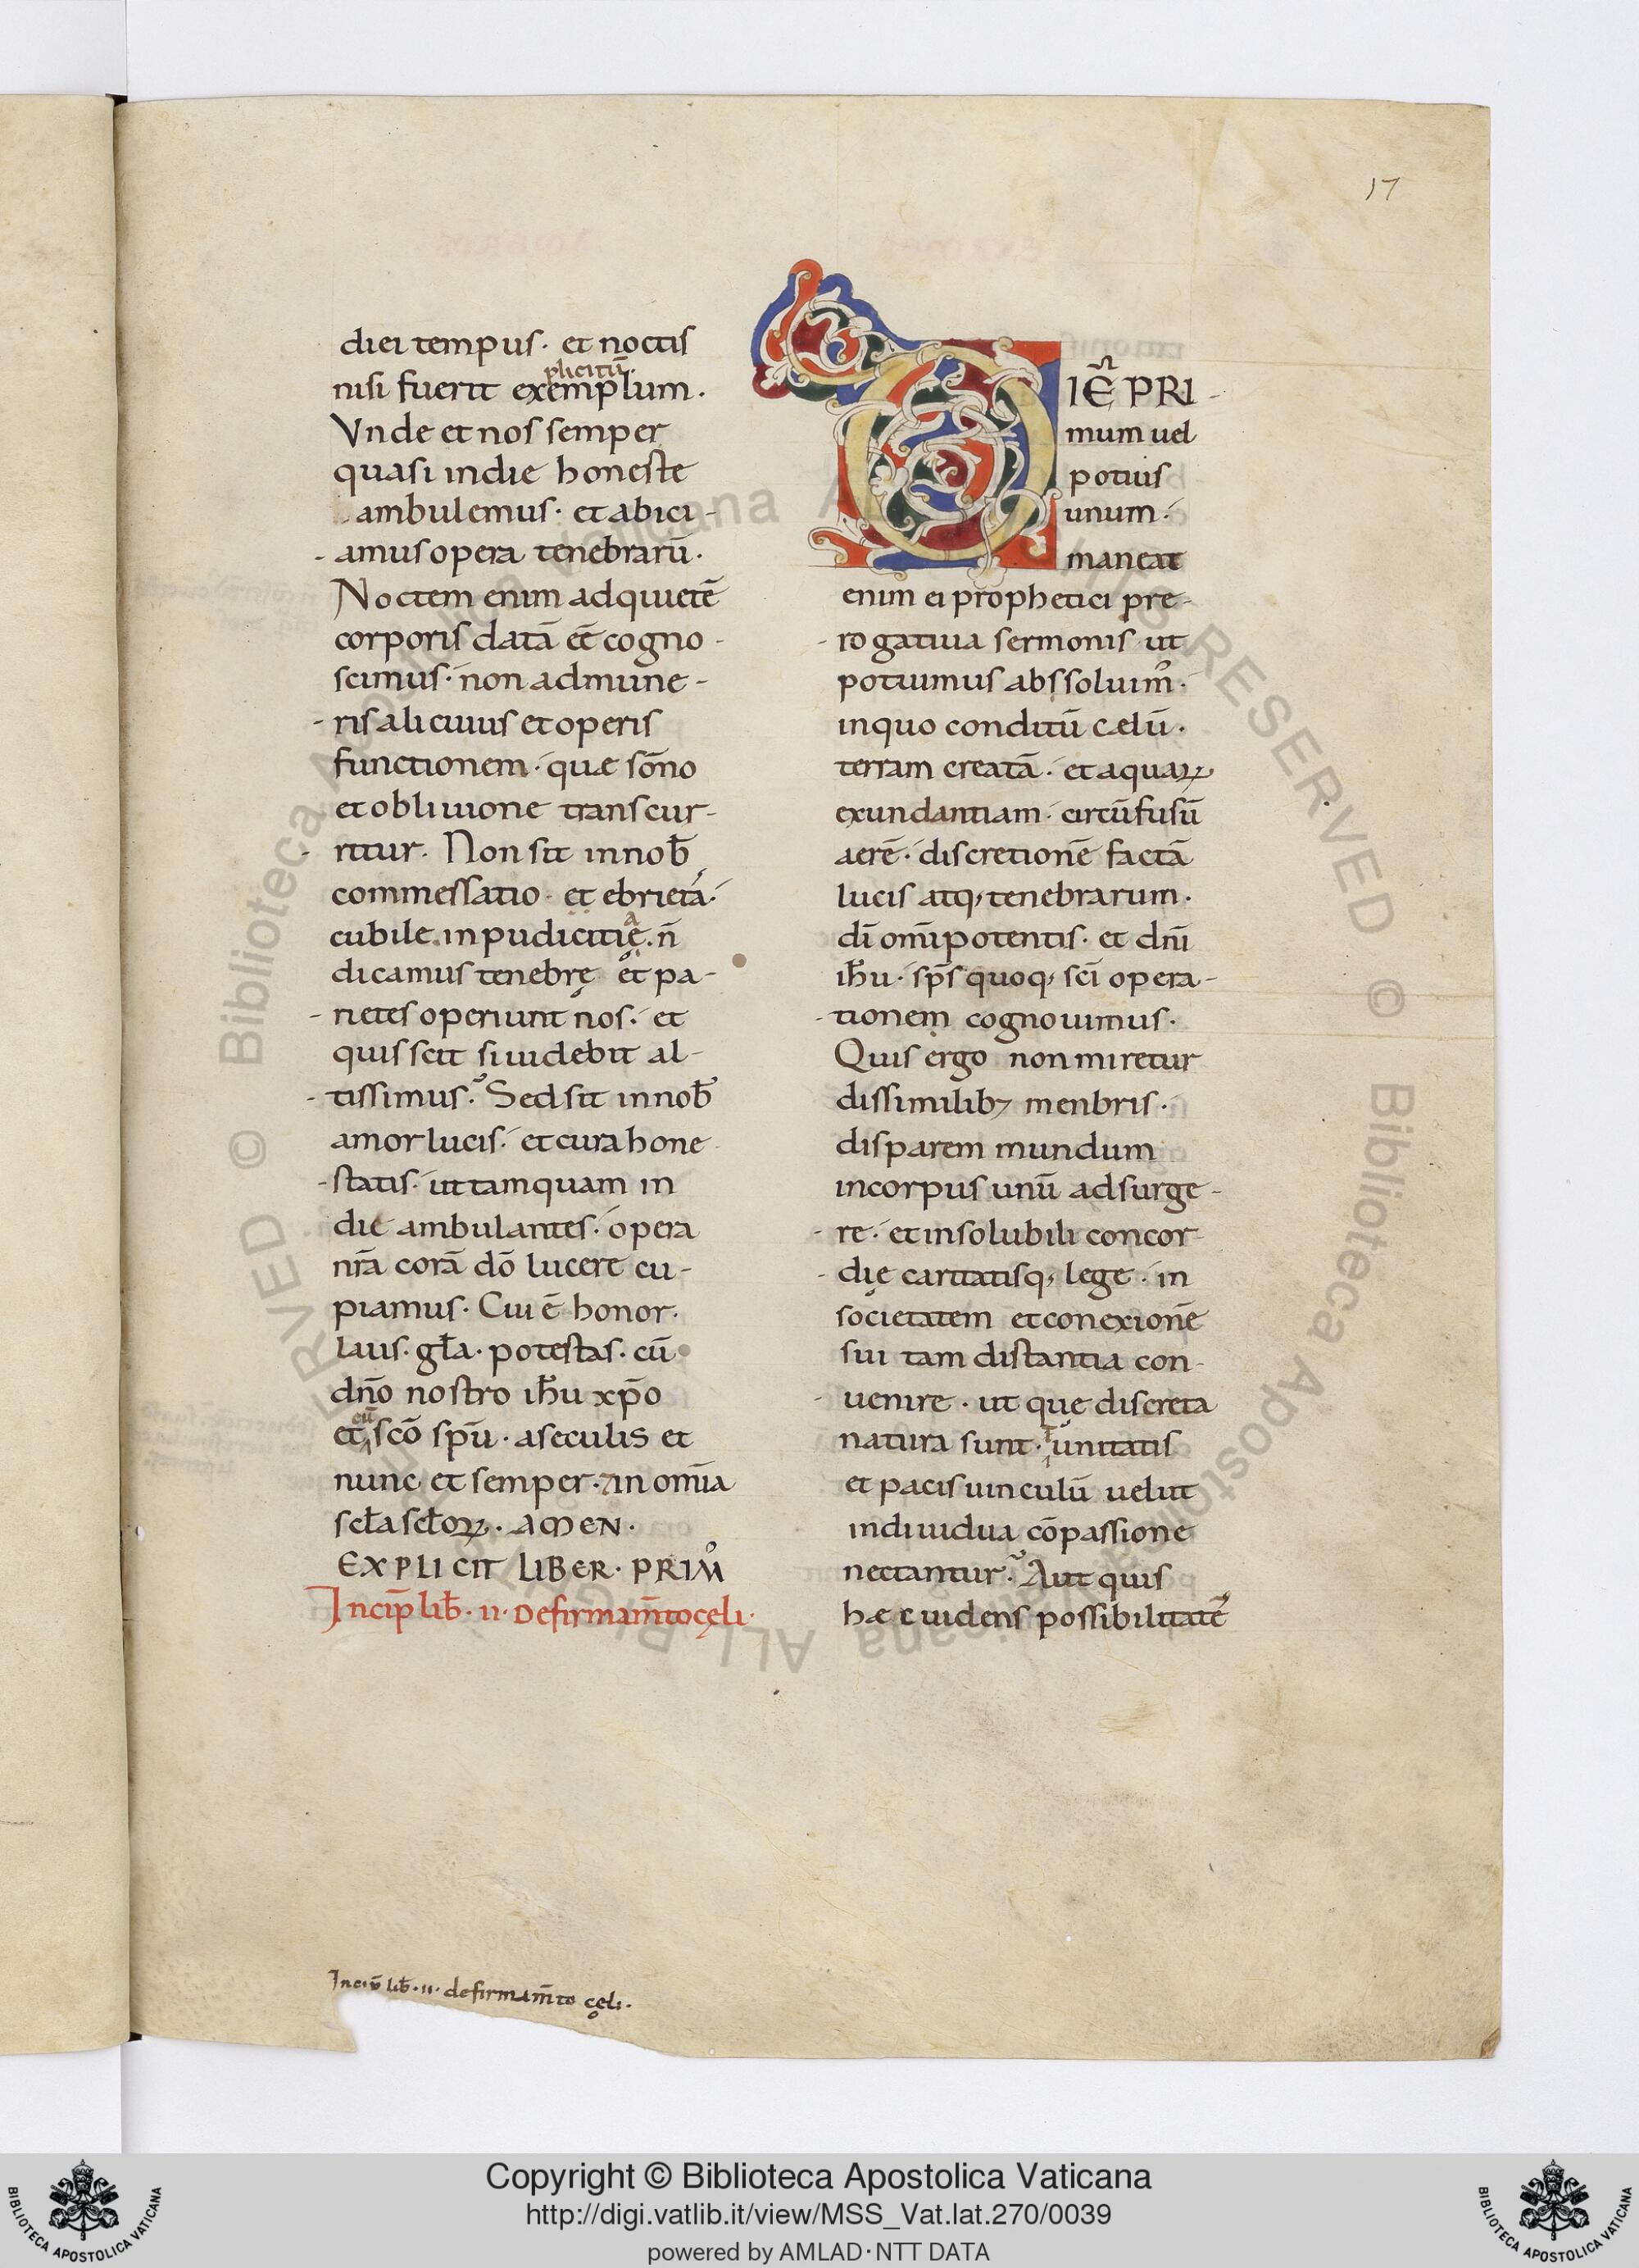 17
diei tempus· et noctis
plicitū·
nisi fuerit exemplum·
Vnde et nos semper
quasi in die honeste
ambulemus· et abici-
-amus opera tenebrarū·
Noctem enim ad quietē
corporis datā eē cogno-
scimus· non ad mune-
-ris alicuius et operis
functionem· quæ sōno
et obliuione transcur-
-ritur. Non sit in nob̄
commessatio· et ebrietas·
a
cubile inpudicitię· n̄
dicamus tenebrę et pa-
-rietes operiunt nos· et
quis scit si uidebit al-
-tissimus? Sed sit in nob̄
amor lucis· et cura hone
-statis· ut tamquam in
die ambulantes· opera
nr̄a corā dō lucere cu-
piamus· Cui ē honor·
laus· gl̄a· potestas· cū
dn̄o nostro ih̄u xp̄o
cū
et scō sp̄u· a seculis et
nunc et semper· ⁊ in omīa
scl̄a scl̄oꝝ· AMEN·
EXPLICIT LIBER· PRIMꝰ
Incip̄ lib̄· II· De firmam̄to cęli·
DIĒ PRI-
mum uel
potius
unum·
maneat
enim ei prophetici pre-
-rogatiua sermonis ut
potuimus abssoluimꝰ·
in quo conditū cælū·
terram creatā· et aquaꝝ
exundantiam· circūfusū
aerē· discretionē factā
lucis atq; tenebrarum·
dī omīpotentis· et dn̄i
ih̄u· sp̄s quoq; scī opera-
-tionem cognouimus·
Quis ergo non miretur
dissimilib; menbris·
disparem mundum
in corpus unū adsurge-
-re· et insolubili concor
-dię caritatisq; lege· in
societatem et conexionē
sui tam distantia con-
-uenire· ut quę discreta
natura sunt· unitatis
et pacis uinculū uelut
indiuidua cōpassione
nectantur? Aut quis
hæc uidens possibilitatē
Incip̄ lib̄· II· de firmam̄to cęli·
© Biblioteca Apostolica Vaticana ALL RIGHTS RESERVED
Copyright © Biblioteca Apostolica Vaticana
http://digi.vatlib.it/view/MSS_Vat.lat.270/0039
powered by AMLAD·NTT DATA
BIBLIOTECA APOSTOLICA VATICANA
BIBLIOTECA APOSTOLICA VATICANA